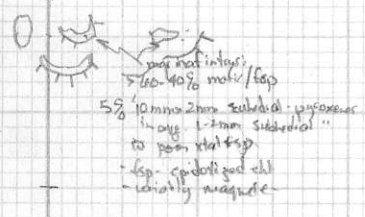 maf intrus:
> 60-40% mafic/fsp
5% 10mm > 2mm subhedral - pyroxenes
in avg. 1-2mm subhedral "
poor xtal fsp
- fsp - epidotized chl
- variably magnetic